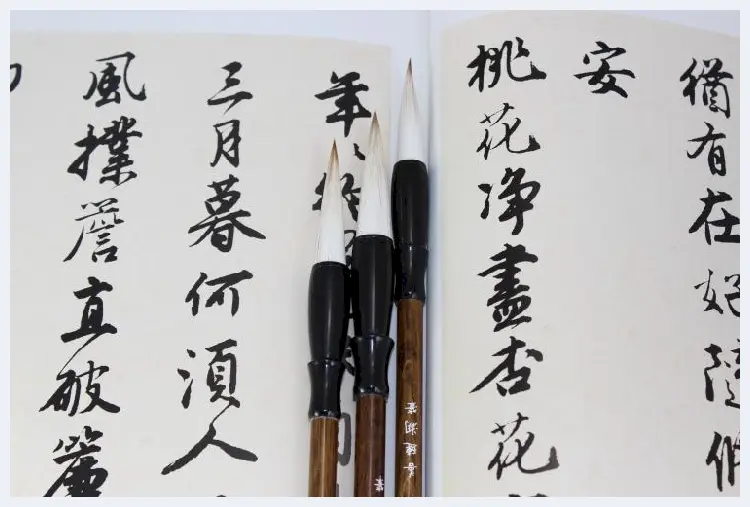 猶有在好隨
安
桃花净盡杏花
年
三月暮何須人
風撲簷直破簾